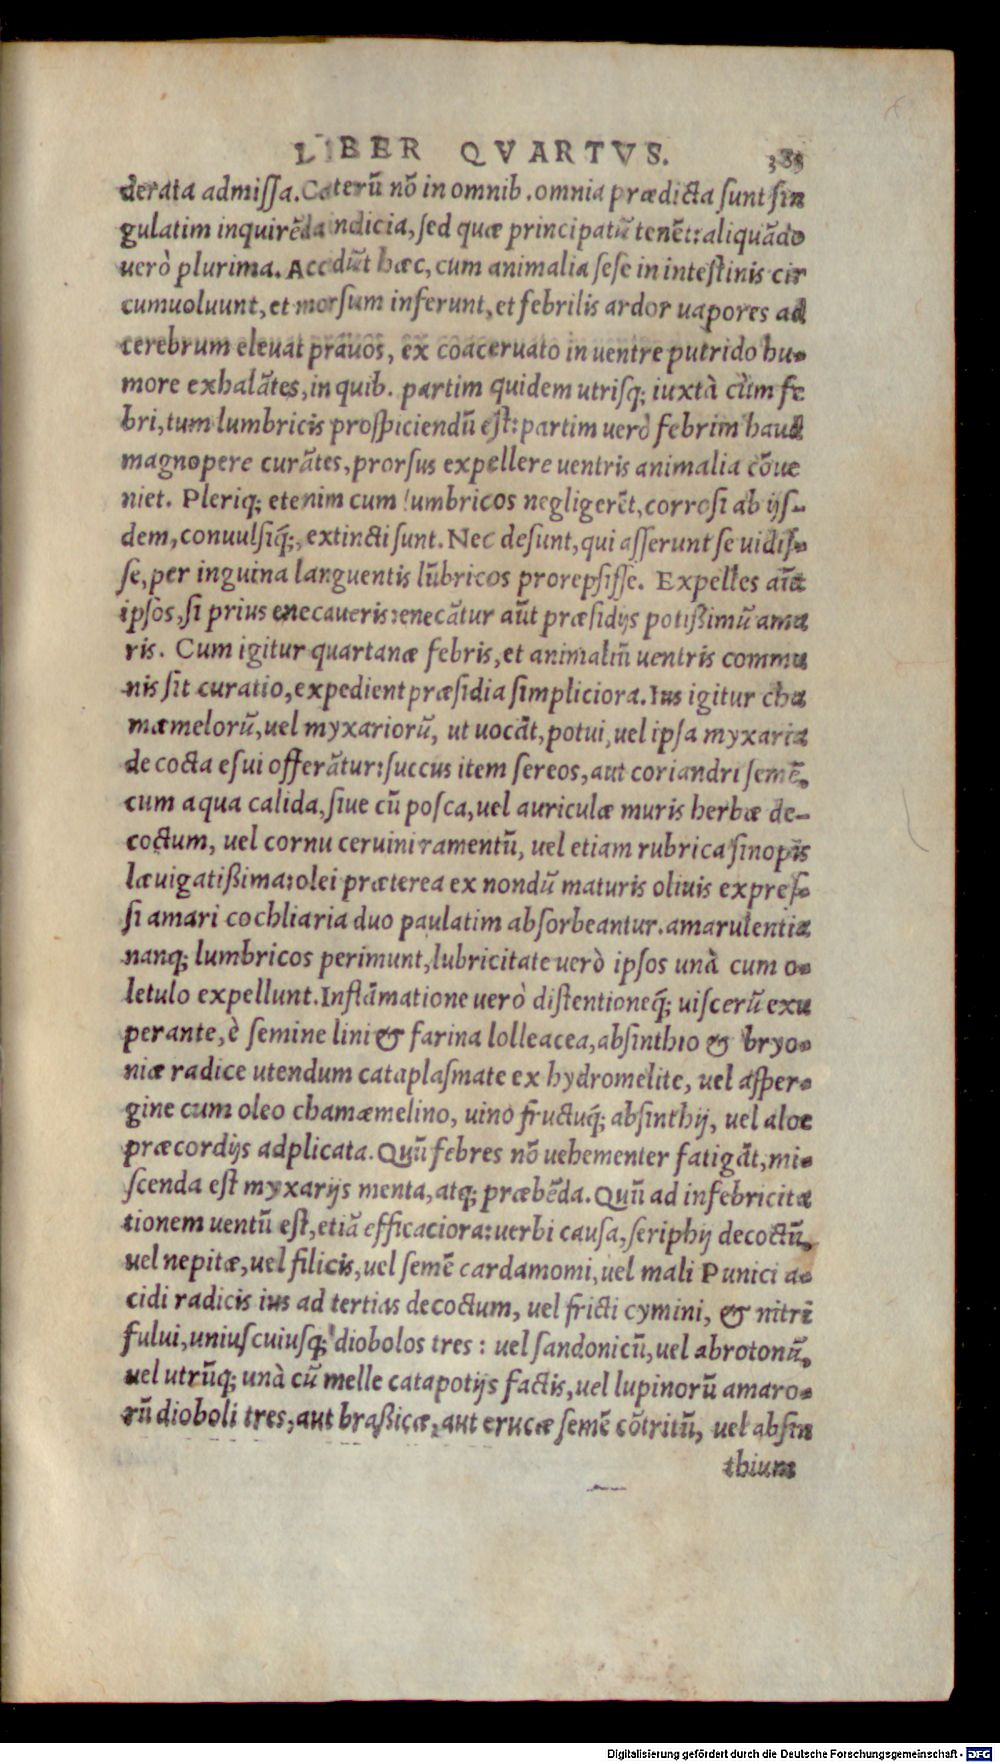 LIBER QVARTVS. 383
derata admissa. Cæterũ nõ in omnib. omnia prædicta sunt sin
gulatim inquirẽda indicia, sed quæ principatũ tenẽt: aliquãdo
uerò plurima. Accedũt hæc, cum animalia sese in intestinis cir
cumuoluunt, et morsum inferunt, et febrilis ardor uapores ad
cerebrum eleuat prauos, ex coaceruato in uentre putrido hu-
more exhalãtes, in quib. partim quidem utrisq; iuxtà cùm fe
bri, tum lumbricis prospiciendũ est: partim uerò febrim haud
magnopere curãtes, prorsus expellere uentris animalia cõue
niet. Pleriq; etenim cum lumbricos negligerẽt, corrosi ab ijs-
dem, conuulsiq́;, extincti sunt. Nec desunt, qui asserunt se uidis-
se, per inguina languentis lũbricos prorepsisse. Expelles aũt
ipsos, si prius enecaueris: enecãtur aũt præsidijs potißimũ ama
ris. Cum igitur quartanæ febris, et animaliũ uentris commu
nis sit curatio, expedient præsidia simpliciora. Ius igitur cha
mæmelorũ, uel myxariorũ, ut uocãt, potui, uel ipsa myxaria
decocta esui offerãtur: succus item sereos, aut coriandri semẽ,
cum aqua calida, siue cũ posca, uel auriculæ muris herbæ de-
coctum, uel cornu ceruini ramentũ, uel etiam rubrica sinopis
læuigatißima: olei præterea ex nondũ maturis oliuis expres-
si amari cochliaria duo paulatim absorbeantur. amarulentia
nanq; lumbricos perimunt, lubricitate uerò ipsos unà cum o-
letulo expellunt. Inflãmatione uerò distentioneq́; uiscerũ exu
perante, è semine lini & farina lolleacea, absinthio & bryo-
niæ radice utendum cataplasmate ex hydromelite, uel asper-
gine cum oleo chamæmelino, uino fructuq́; absinthij, uel aloe
præcordijs adplicata. Quũ febres nõ uehementer fatigãt, mi-
scenda est myxarijs menta, atq; præbẽda. Quũ ad infebricita
tionem uentũ est, etiã efficaciora: uerbi causa, seriphij decoctũ,
uel nepitæ, uel filicis, uel semẽ cardamomi, uel mali Punici a-
cidi radicis ius ad tertias decoctum, uel fricti cymini, & nitri
fului, uniuscuiusq; diobolos tres: uel sandonicũ, uel abrotonũ,
uel utrũq; unà cũ melle catapotijs factis, uel lupinorũ amaro-
rũ dioboli tres, aut braßicæ, aut erucæ semẽ cõtritũ, uel absin
thium
Digitalisierung gefördert durch die Deutsche Forschungsgemeinschaft - DFG